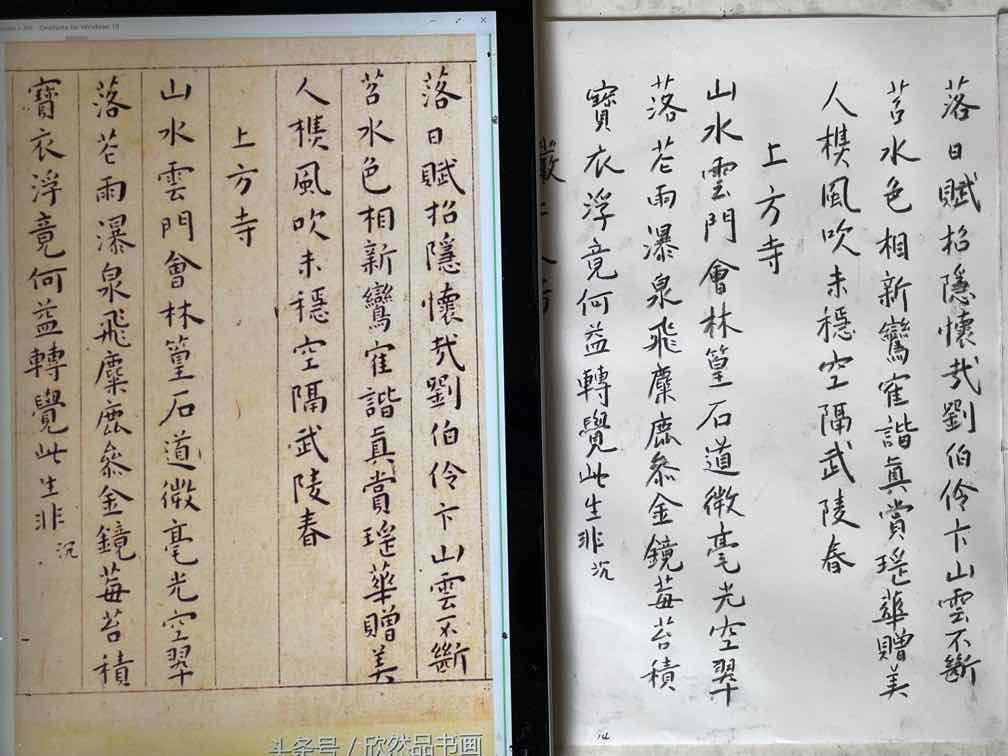 OneNote for Windows 10
落日賦招隱懷哉劉伯伶卞山雲不斷
苕水色相新鸞寉諧眞賞瑤華贈美
人樵風吹未穩空隔武陵春
上方寺
山水雲門會林篁石道微毫光空翠
落花雨瀑泉飛麋鹿叅金鏡莓苔積
寶衣浮竟何益轉覺此生非沉
头条号 / 欣然品书画
落日賦招隱懷哉劉伯伶卞山雲不斷
苕水色相新鸞寉諧眞賞瑤華贈美
人樵風吹未穩空隔武陵春
上方寺
山水雲門會林篁石道微毫光空翠
落花雨瀑泉飛麋鹿叅金鏡莓苔積
寶衣浮竟何益轉覺此生非沉